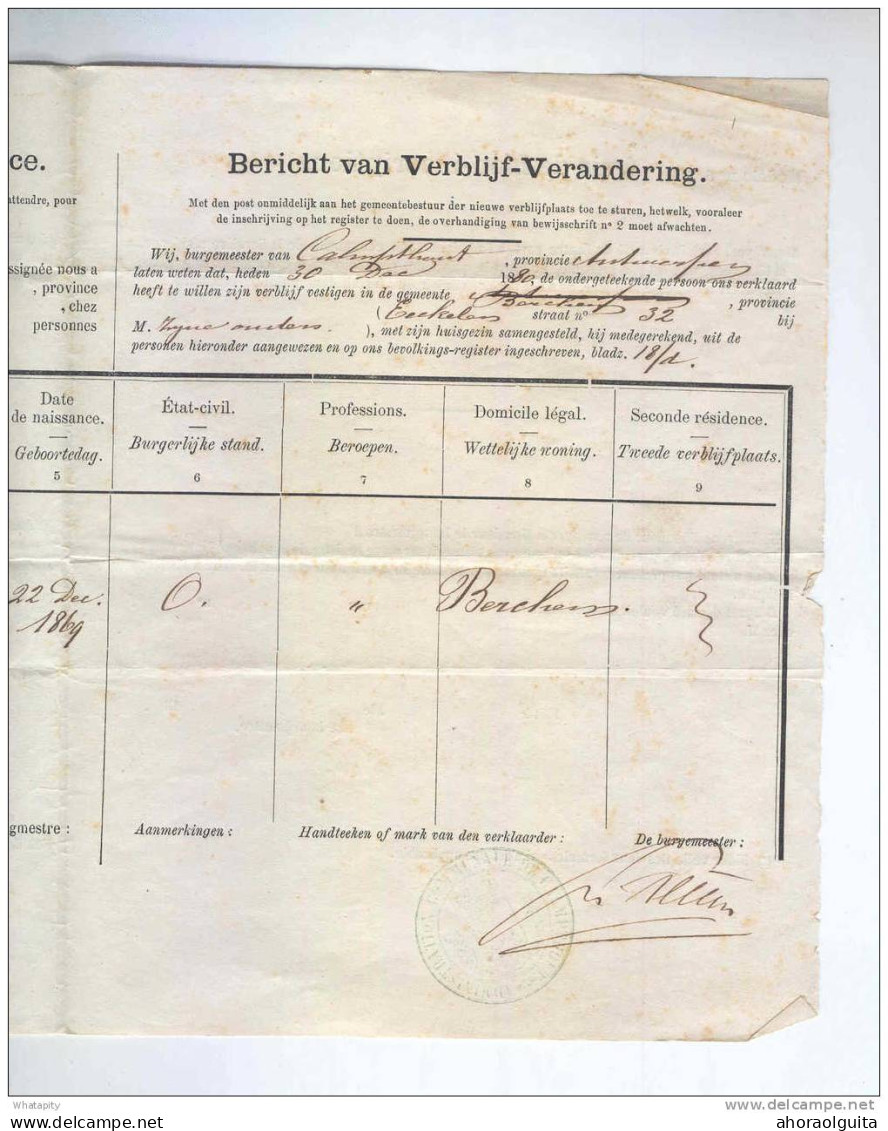 ce.
attendre, pour
ssignée nous a
, province
, chez
personnes
Bericht van Verblijf-Verandering.
Met den post onmiddelijk aan het gemeentebestuur der nieuwe verblijfplaats toe te sturen, hetwelk, vooraleer
de inschrijving op het register te doen, de overhandiging van bewijsschrift n° 2 moet afwachten.
Wij, burgemeester van Calmpthout, provincie Antwerpen
laten weten dat, heden 30 Dec 1880, de ondergeteekende persoon ons verklaard
heeft te willen zijn verblijf vestigen in de gemeente Berchem, provincie
( straat n° 32 bij
M. zyne ouders. ), met zijn huisgezin samengesteld, hij medegerekend, uit de
personen hieronder aangewezen en op ons bevolkings-register ingeschreven, bladz. 18/d.
Date
de naissance.
Geboortedag.
5
État-civil.
Burgerlijke stand.
6
Professions.
Beroepen.
7
Domicile légal.
Wettelijke woning.
8
Seconde résidence.
Tweede verblijfplaats.
9
22 Dec.
1869
O.
"
Berchem.
gmestre :
Aanmerkingen :
Handteeken of mark van den verklaarder :
De burgemeester :
Whatapity
delcampe.net
ahoraolguita